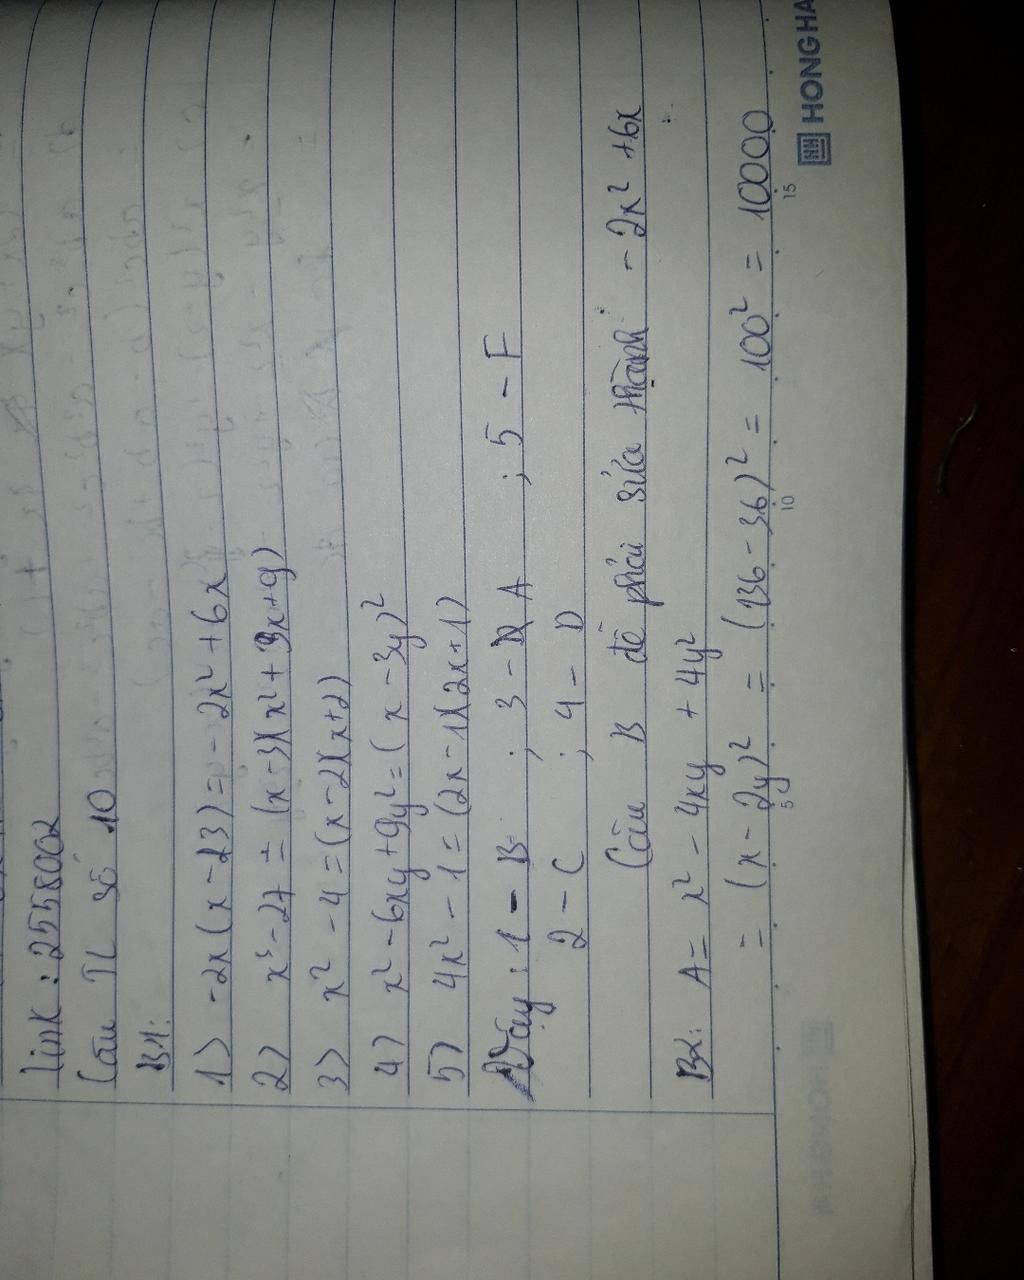 link : 2558002
Câu TL số 10
B1:
1) -2x(x-23) = -2x² + 6x
2) x³-27 = (x-3)(x²+3x+9)
3) x² - 4 = (x-2)(x+2)
4) x² - 6xy + 9y² = (x - 3y)²
5) 4x² - 1 = (2x-1)(2x+1)
Vậy : 1 - B ; 3 - A ; 5 - F
2 - C ; 4 - D
Câu B đề phải sửa thành - 2x² + 6x
B2: A = x² - 4xy + 4y²
= (x - 2y)² = (136 - 36)² = 100² = 10000
5 10 15
HONG HA